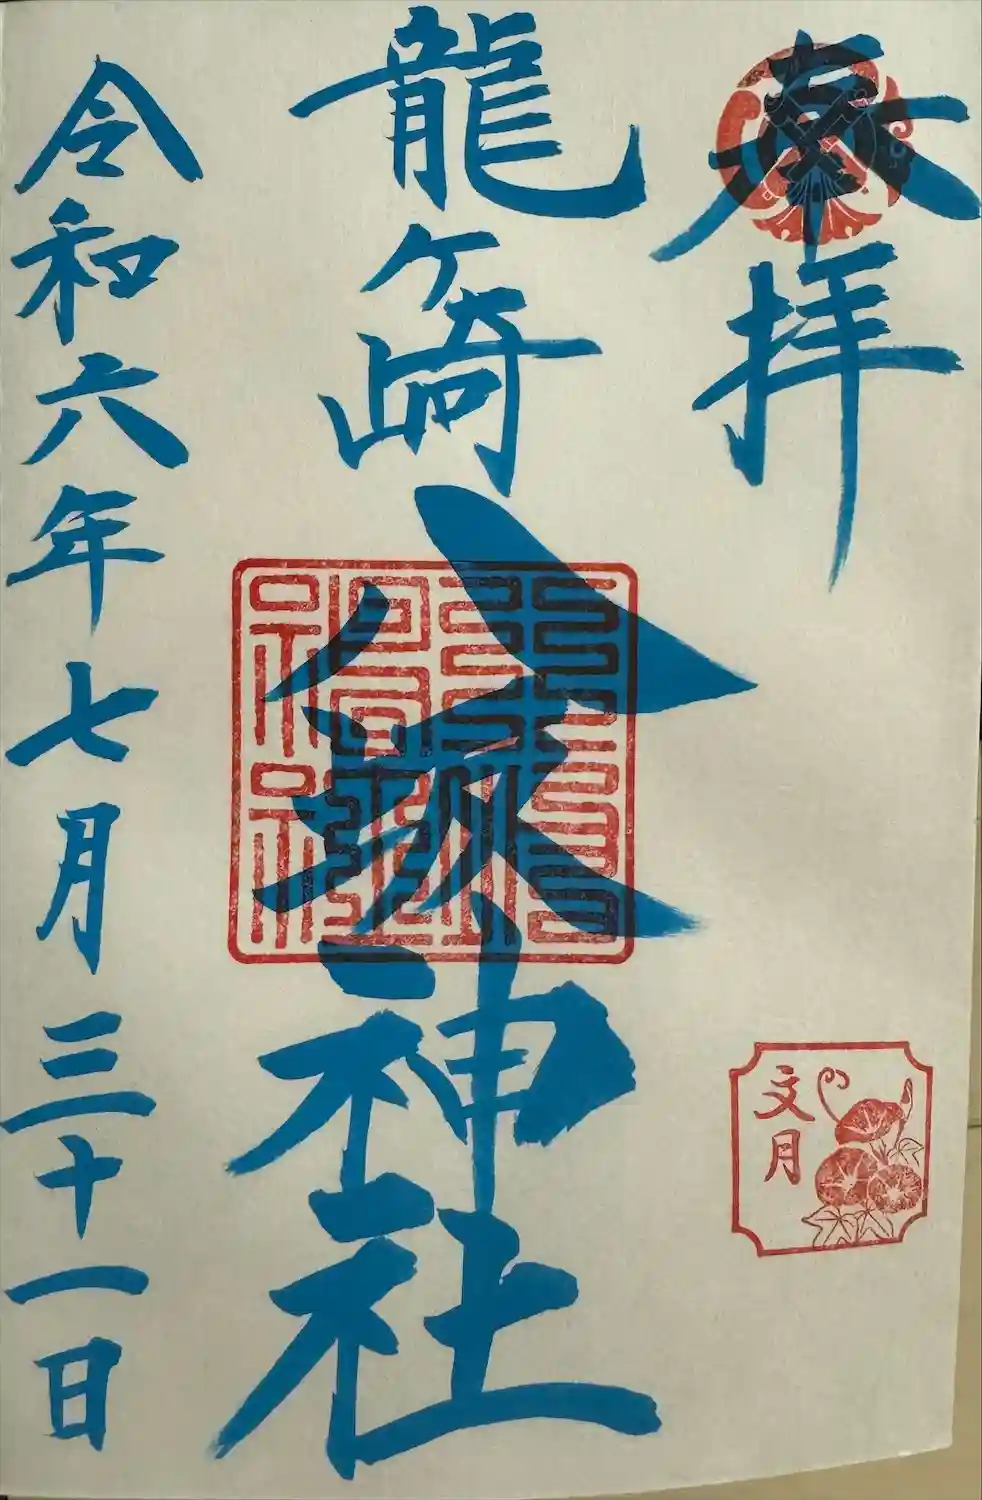 奉拝
文月
龍ケ崎八坂神社
令和六年七月三十一日